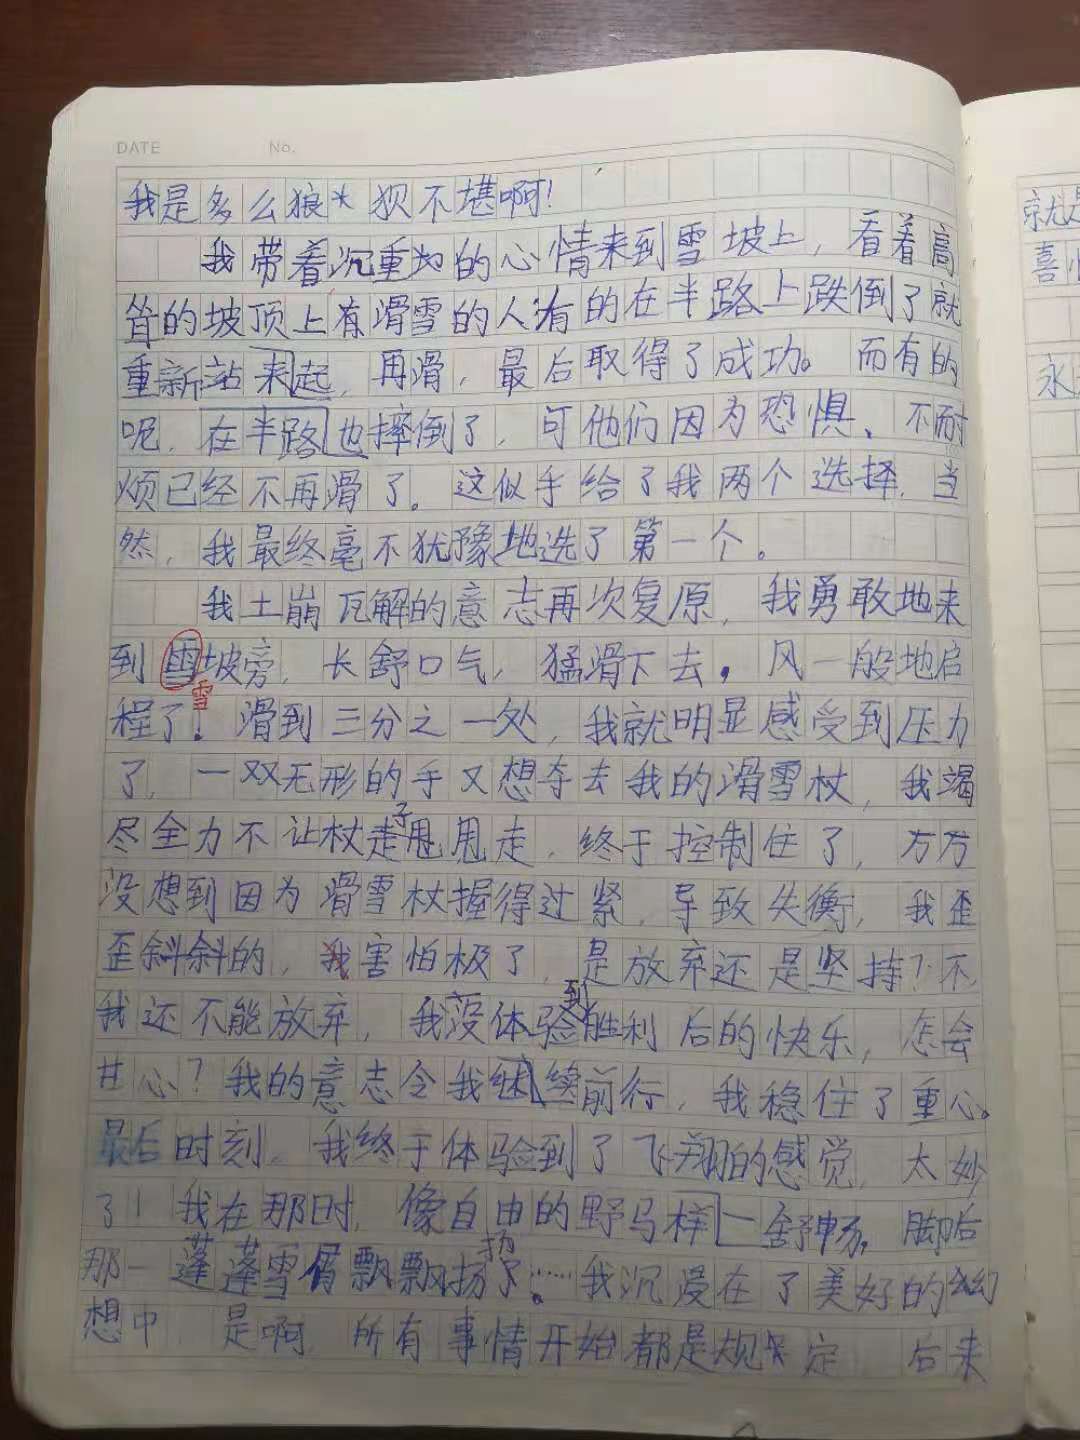 DATE No.
我是多么狼狈不堪啊!
我带着沉重地的心情来到雪坡上,看着高
耸的坡顶上有滑雪的人有的在半路上跌倒了就
重新站来起,再滑,最后取得了成功。而有的
呢,在半路也摔倒了,可他们因为恐惧、不耐
烦已经不再滑了。这似乎给了我两个选择,当
然,我最终毫不犹豫地选了第一个。
我土崩瓦解的意志再次复原,我勇敢地来
到雪坡旁,长舒口气,猛滑下去。风一般地启
雪
程了!滑到三分之一处,我就明显感受到压力
了,一双无形的手又想夺去我的滑雪杖,我竭
尽全力不让杖子甩走,终于控制住了,万万
没想到因为滑雪杖握得过紧,导致失衡,我歪
歪斜斜的,我害怕极了,是放弃还是坚持?不
我还不能放弃,我没体验到胜利后的快乐,怎会
甘心?我的意志令我继续前行,我稳住了重心。
最后时刻,我终于体验到了飞翔的感觉,太妙
了!我在那时,像自由的野马样一舒畅。脚后
那一蓬蓬雪屑飘飘扬扬。……我沉浸在了美好的幻
想中 是啊,所有事情开始都是规定 后来
就是
喜
永